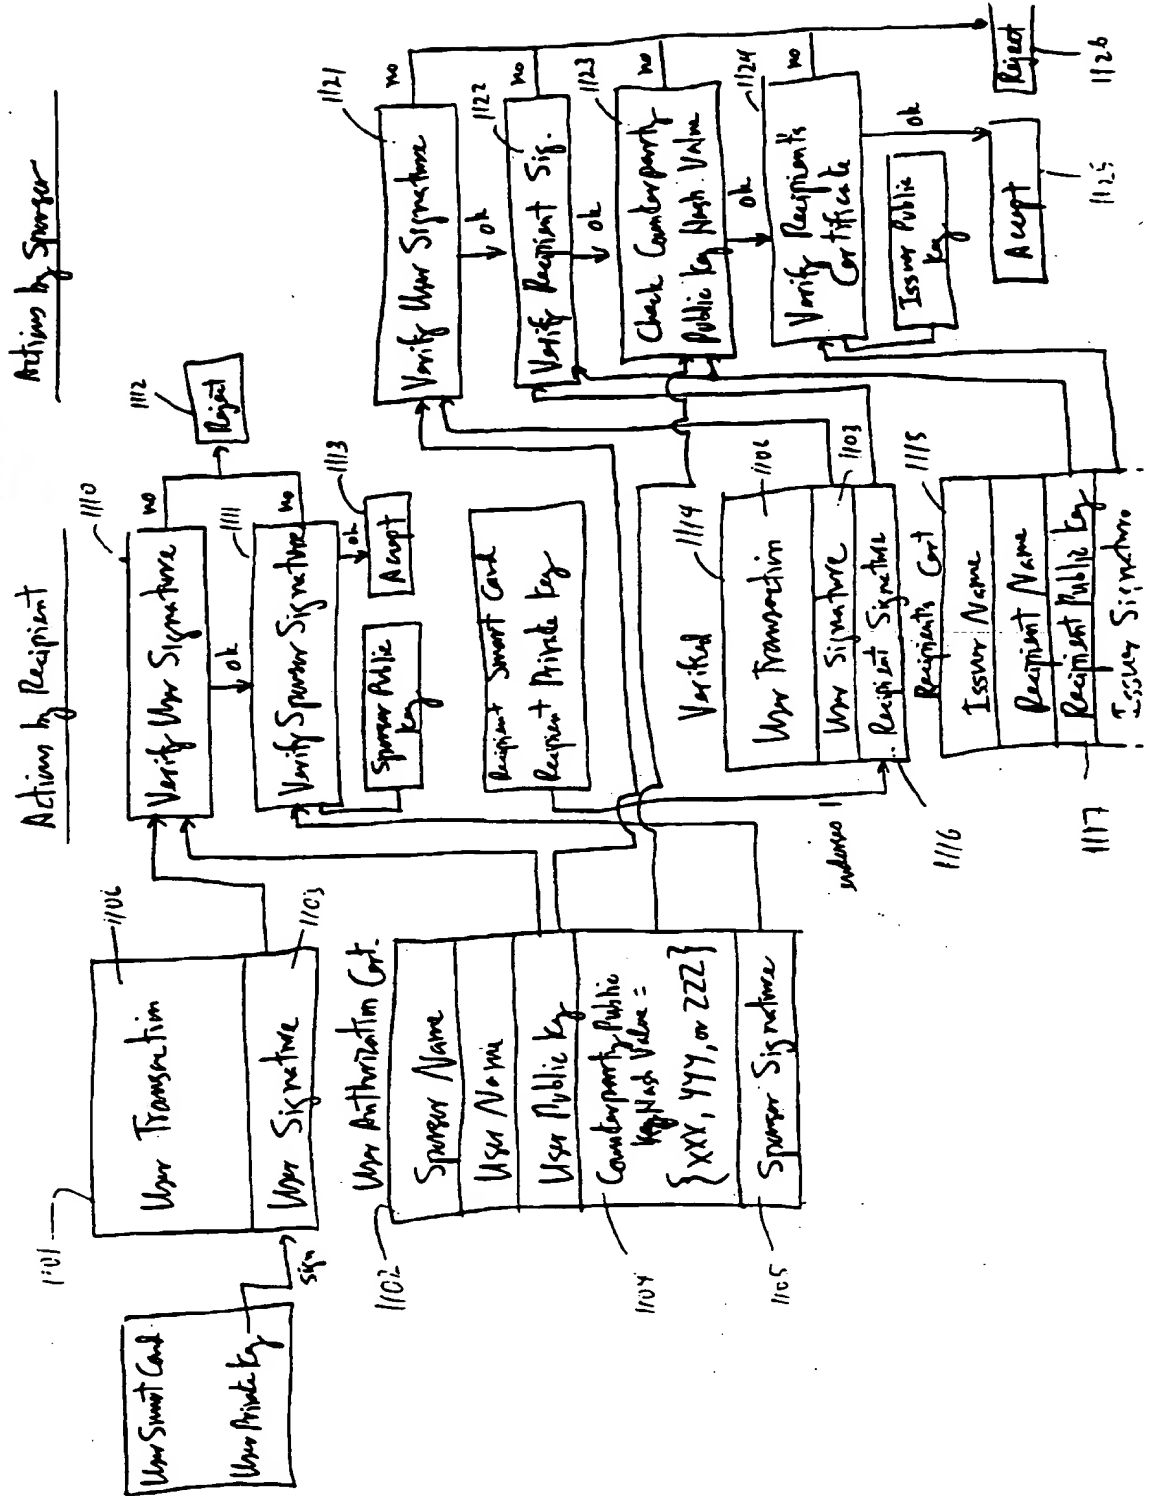 Actions by Recipient
Actions by Sponsor
User Smart Card
User Private Key
sign
1101
User Transaction
1106
User Signature
1103
User Authorization Cert.
1102
Sponsor Name
User Name
User Public Key
Counterparty Public
Key Hash Value =
{XXX, YYY, or ZZZ}
1104
Sponsor Signature
1105
1110
Verify User Signature
no
ok
1111
Verify Sponsor Signature
no
1112
Reject
ok
1113
Accept
Sponsor Public
Key
Recipient Smart Card
Recipient Private Key
Verified
1114
User Transaction
1106
User Signature
1103
Recipient Signature
1116
Recipients Cert
1115
Issuer Name
Recipient Name
Recipient Public Key
1117
Issuer Signature
1121
Verify User Signature
no
ok
1122
Verify Recipient Sig.
no
ok
1123
Check Counterparty
Public Key Hash Value
no
ok
1124
Verify Recipients
Certificate
no
ok
Issuer Public
Key
Accept
1125
Reject
1126